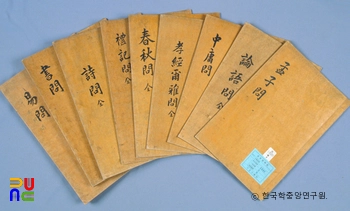 易問
書問
詩問 全
禮記問 全
春秋問 全
孝經爾雅問 全
中庸問
論語問 全
孟子問
ⓒ 한국학중앙연구원.